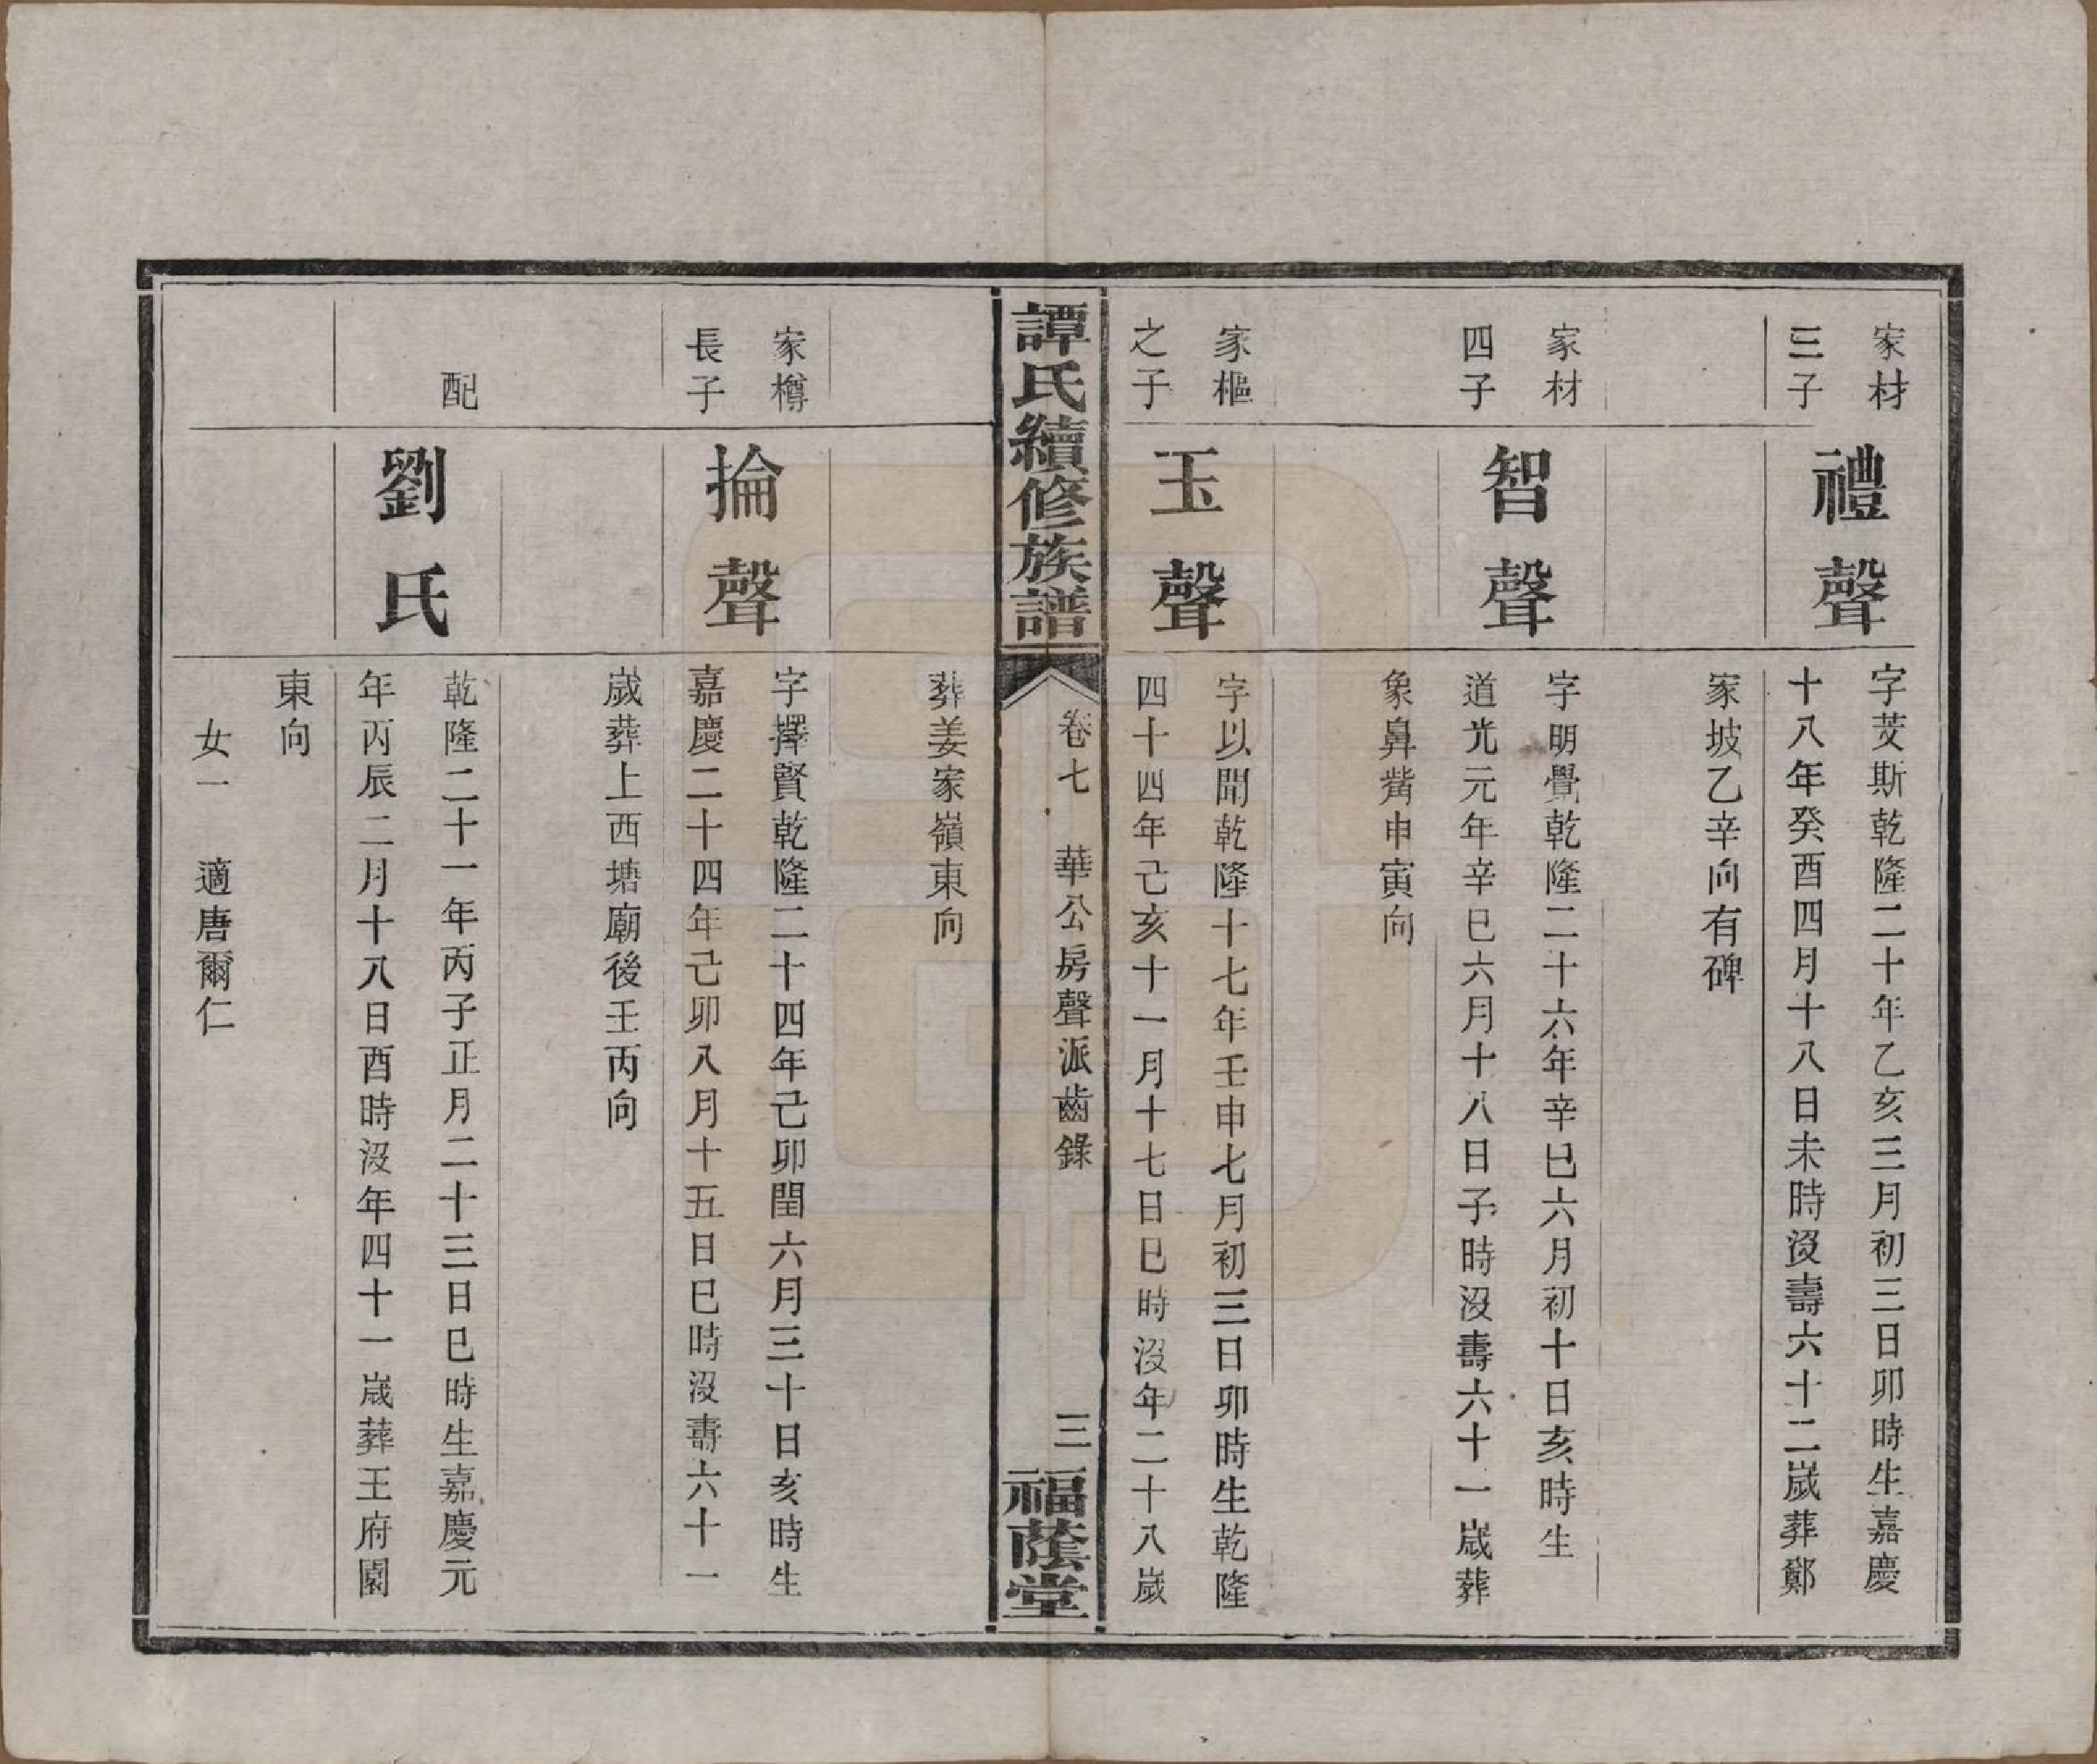 家材
三子
禮聲
字芠斯乾隆二十年乙亥三月初三日卯時生嘉慶
十八年癸酉四月十八日未時沒壽六十二嵗葬鄭
家坡乙辛向有碑
家材
四子
智聲
字明覺乾隆二十六年辛巳六月初十日亥時生
道光元年辛巳六月十八日子時沒壽六十一嵗葬
象鼻觜申寅向
家樞
之子
玉聲
字以聞乾隆十七年壬申七月初三日卯時生乾隆
四十四年己亥十一月十七日巳時沒年二十八嵗
譚氏續修族譜
卷七 華公房聲派齒錄
三
福蔭堂
葬姜家嶺東向
家樽
長子
掄聲
字擇賢乾隆二十四年己卯閏六月三十日亥時生
嘉慶二十四年己卯八月十五日巳時沒壽六十一
嵗葬上西塘廟後壬丙向
配
劉氏
乾隆二十一年丙子正月二十三日巳時生嘉慶元
年丙辰二月十八日酉時沒年四十一嵗葬王府園
東向
女一 適唐爾仁